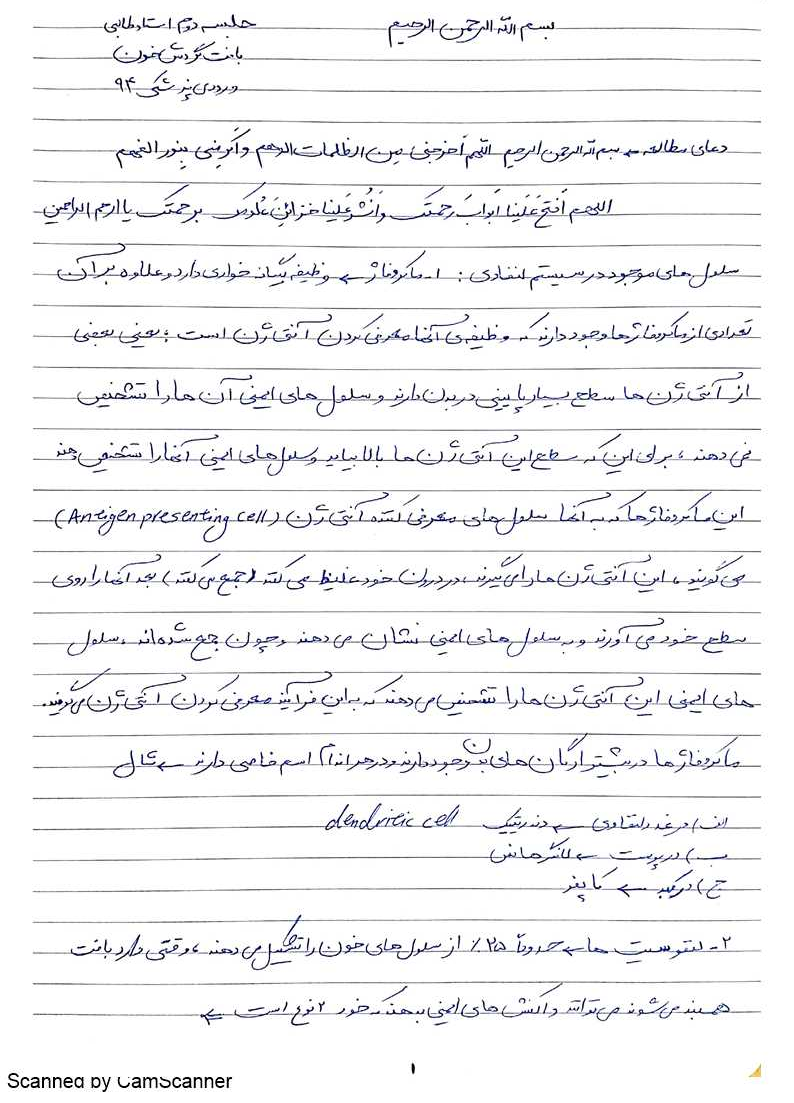 بسم الله الرحمن الرحیم
جلسه دوم استاد طالبی
بافت گردش خون
ورودی پزشکی ۹۴
دعای مطالعه ← بسم الله الرحمن الرحیم اللهم اَخرجنی مِن الظلمات الوهم و اَکرِمنی بنور الفهم
اللهم اَفتَح عَلَینا اَبوابَ رحمتک وَانشُر عَلینا خزائِنَ عُلومک برحمتک یا ارحم الراحمین
سلول های موجود در سیستم لنفاوی : ۱- ماکروفاژ ← وظیفه بیگانه خواری دارد و علاوه بر آن
تعدادی از ماکروفاژها وجود دارند که وظیفه ی آنها معرفی کردن آنتی ژن است ؛ یعنی بعضی
از آنتی ژن ها سطح بسیار پایینی در بدن دارند و سلول های ایمنی آن ها را تشخیص
نمی دهند ، برای این که سطح این آنتی ژن ها بالا بیاید و سلول های ایمنی آنها را تشخیص دهند
این ماکروفاژها که به آنها سلول های معرفی کننده آنتی ژن (Antigen presenting cell)
می گویند ، این آنتی ژن ها را می گیرند ، در درون خود غلیظ می کنند (جمع می کنند) بعد آنها را روی
سطح خود می آورند و به سلول های ایمنی نشان می دهند و چون جمع شده اند ، سلول
های ایمنی این آنتی ژن ها را تشخیص می دهند که به این فرآیند معرفی کردن آنتی ژن می گویند.
ماکروفاژ ها در بیشتر ارگان های بدن وجود دارند و در هر اندام اسم خاصی دارند ← مثال
الف) در غدد لنفاوی ← دندریتیک dendriteic cell
ب) در پوست ← لانگرهانس
ج) در کبد ← کاپفر
۲- لنفوسیت ها ← حدوداً ۲۵٪ از سلول های خون را تشکیل می دهند ، وقتی وارد بافت
همبند می شوند می توانند واکنش های ایمنی بدهند که خود ۲ نوع است ←
۱
Scanned by CamScanner